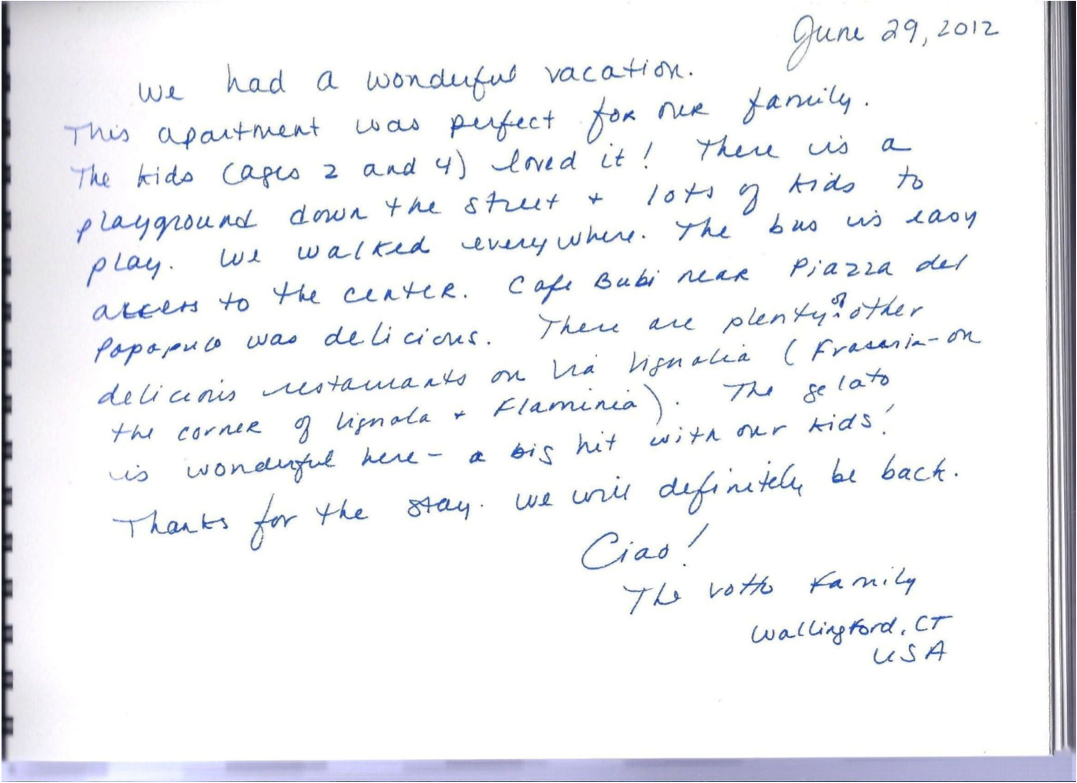 June 29, 2012
We had a wonderful vacation.
This apartment was perfect for our family.
The kids (ages 2 and 4) loved it! There is a
playground down the street + lots of kids to
play. We walked everywhere. The bus is easy
access to the center. Cafe Bubi near Piazza del
was delicious. There are plenty of other
delicious restaurants on Via (Frasaria-on
the corner of Vignola + Flaminia). The gelato
is wonderful here - a big hit with our kids!
Thanks for the stay. We will definitely be back.
Ciao!
The Votto Family
Wallingford, CT
USA